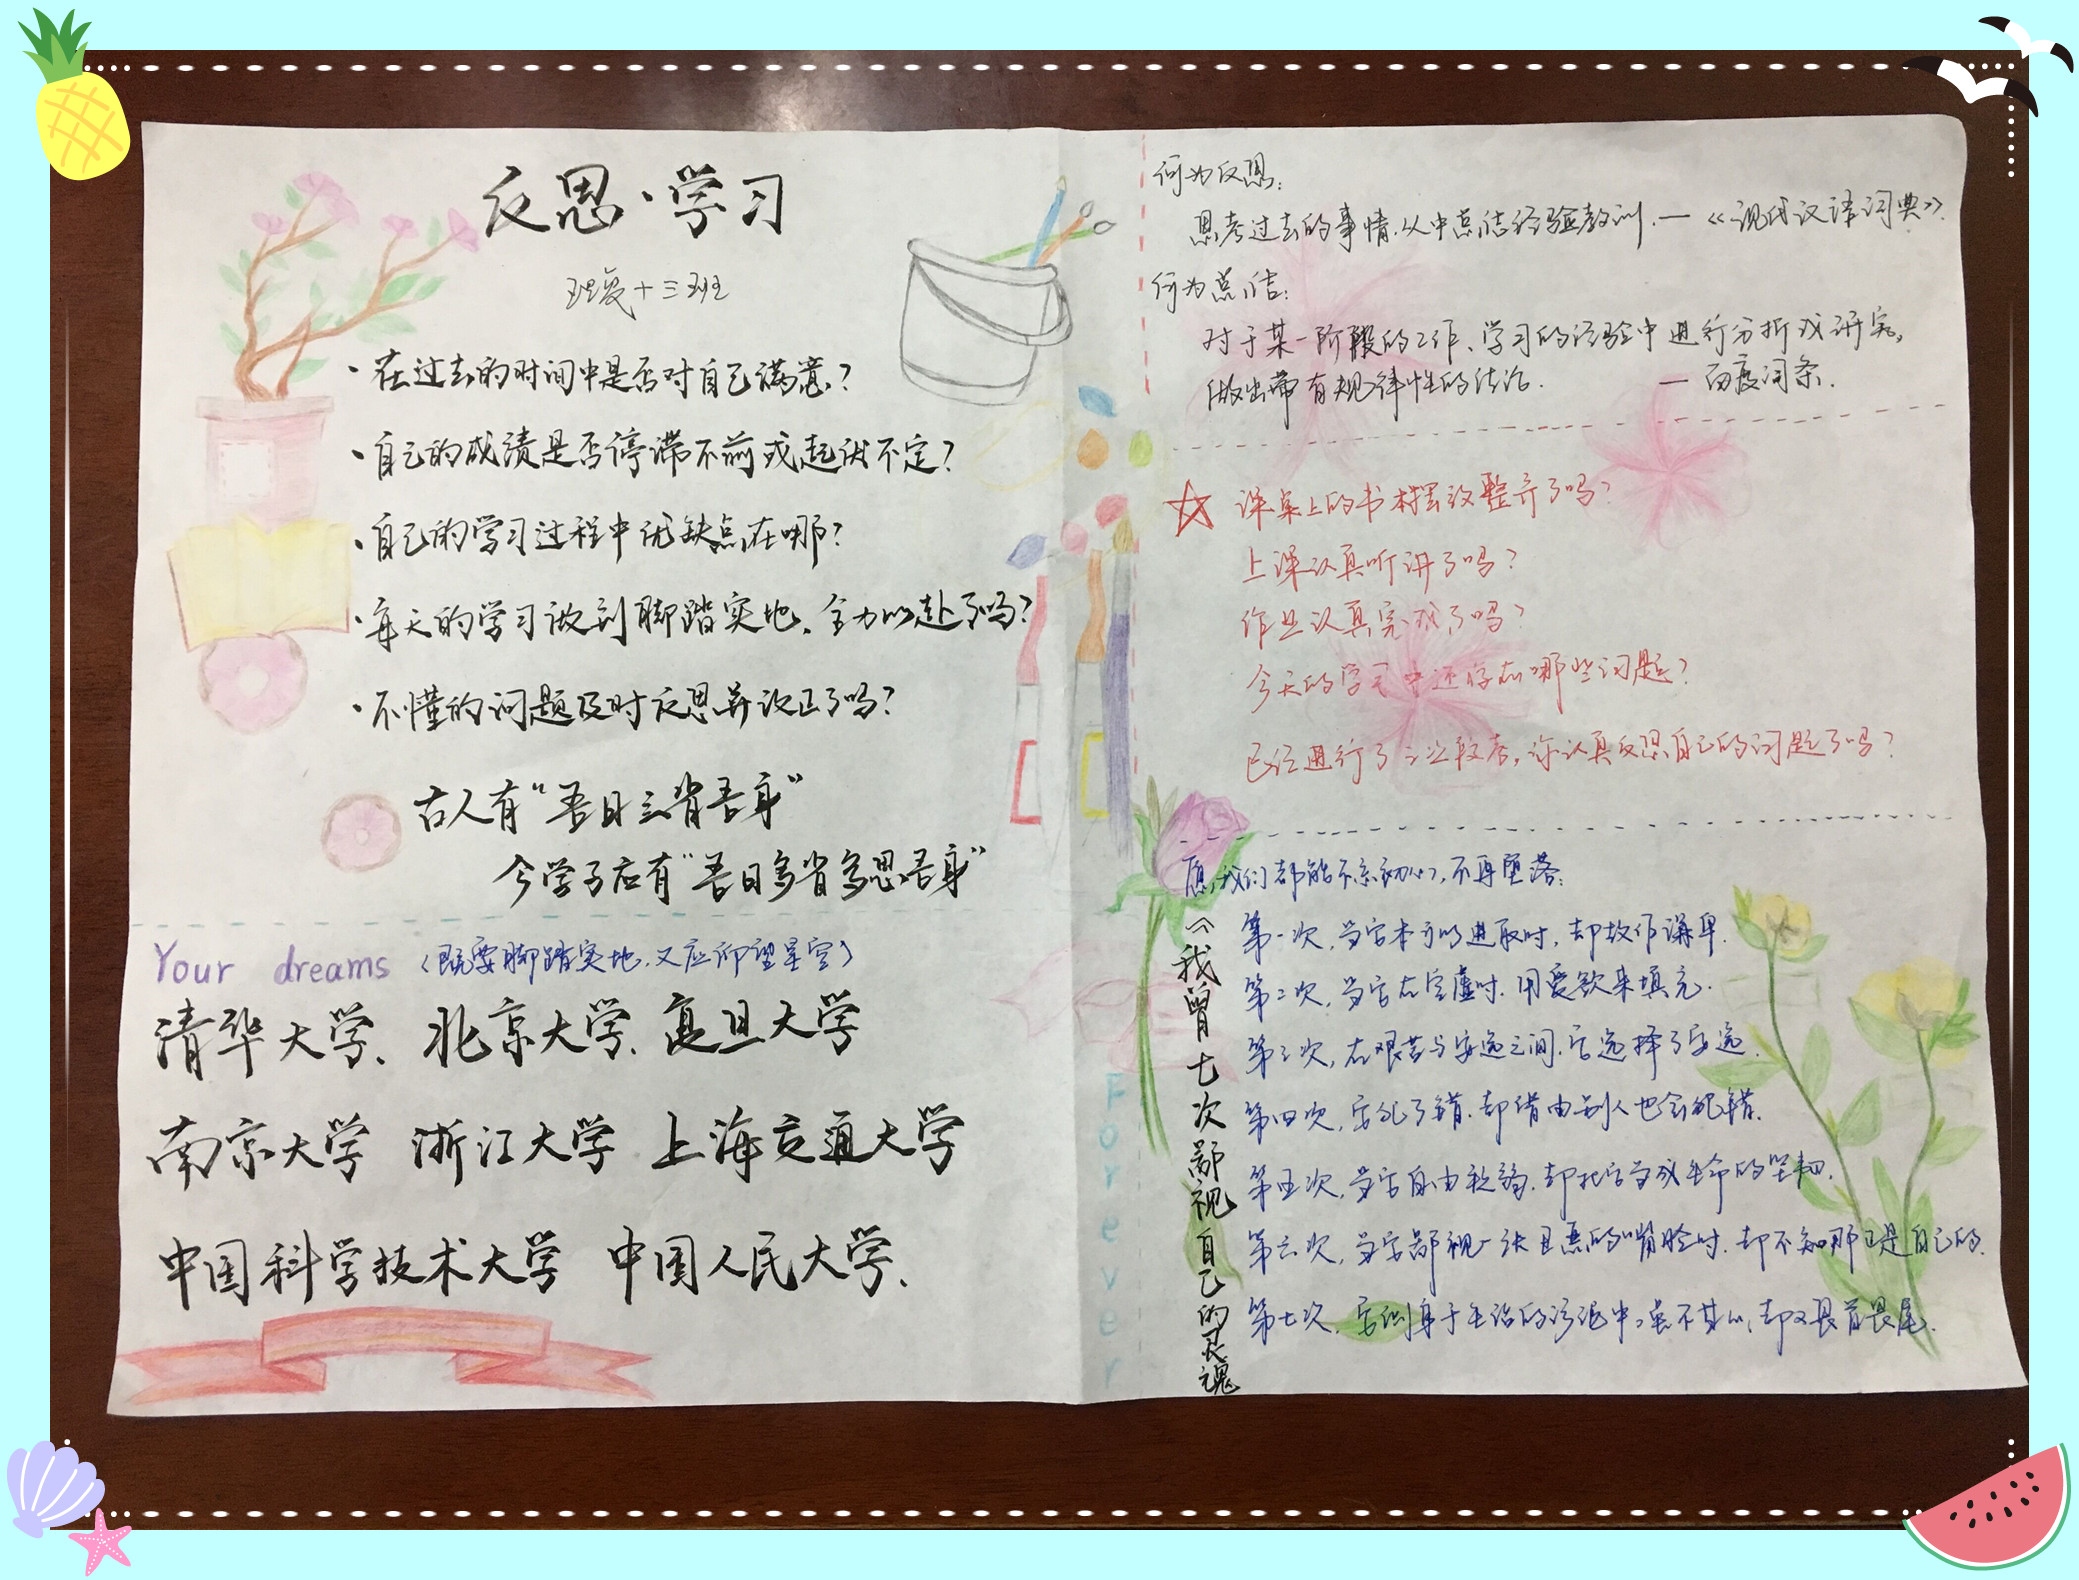 反思·学习
理复十三班
·在过去的时间中是否对自己满意？
·自己的成绩是否停滞不前或起伏不定？
·自己的学习过程中优缺点在哪？
·每天的学习做到脚踏实地、全力以赴了吗？
·不懂的问题及时反思并改正了吗？
古人有“吾日三省吾身”
今学子应有“吾日多省多思吾身”
Your dreams （既要脚踏实地，又应仰望星空）
清华大学、北京大学、复旦大学
南京大学 浙江大学 上海交通大学
中国科学技术大学 中国人民大学、
何为反思：
思考过去的事情，从中总结经验教训.—《现代汉语词典》.
何为总结：
对于某一阶段的工作、学习的经验中进行分析或研究，
做出带有规律性的结论. —百度词条.
☆ 课桌上的书本摆放整齐了吗？
上课认真听讲了吗？
作业认真完成了吗？
今天的学习中还存在哪些问题？
已经进行了三次段考，你认真反思自己的问题了吗？
愿我们都能不忘初心，不再堕落：
《我曾七次鄙视自己的灵魂
第一次，当它本可以进取时，却故作谦卑.
第二次，当它在空虚时，用爱欲来填充.
第三次，在艰苦与安逸之间，它选择了安逸.
第四次，它犯了错，却借由别人也会犯错.
第五次，当它自由软弱，却把它当成生命的坚韧.
第六次，当它鄙视一张丑恶的嘴脸时，却不知那正是自己的.
第七次，它侧身于生活的污泥中，虽不甘心，却又畏首畏尾.
Forever